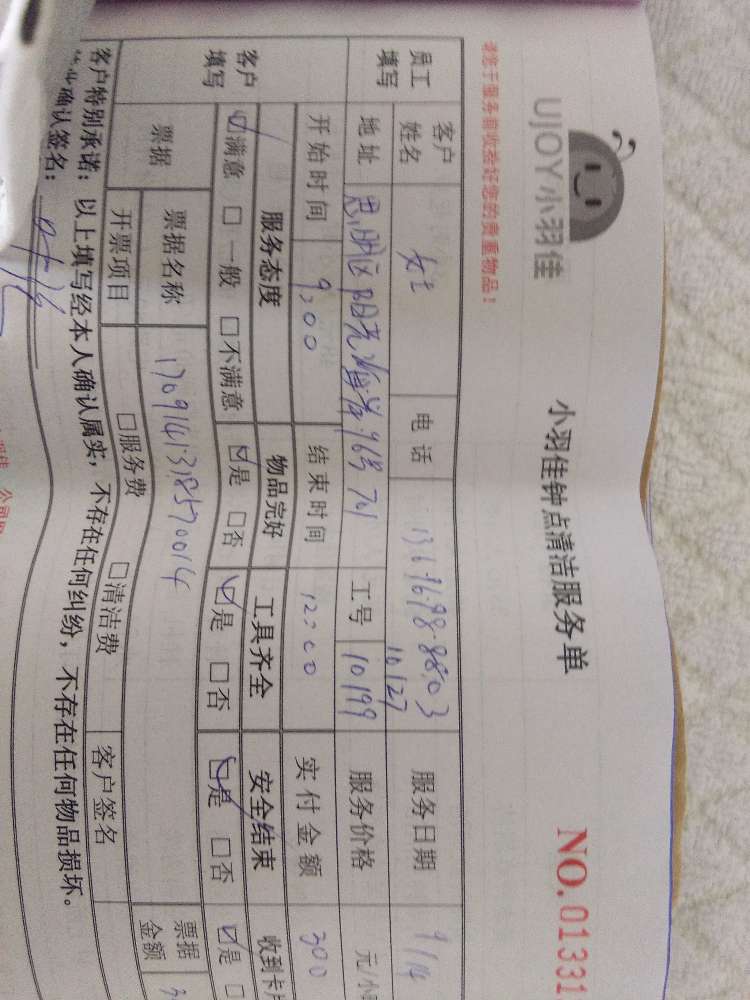 UJOY小羽佳
小羽佳钟点清洁服务单
NO.01331
请您于服务前收捡好您的贵重物品！
员工填写
客户姓名 女士 电话 13696988803 服务日期 9/14
地址 思明区阳光 96号701 工号 10127 10199 服务价格 元/小
开始时间 9:00 结束时间 12:00 实付金额 300
客户填写
服务态度 物品完好 工具齐全 安全结束 收到卡片
☑满意 □一般 □不满意 ☑是 □否 ☑是 □否 ☑是 □否 ☑是 □
票据 票据名称 1709141318570014 票据金额
开票项目 □服务费 □清洁费 客户签名
客户特别承诺：以上填写经本人确认属实，不存在任何纠纷，不存在任何物品损坏。
确认签名：